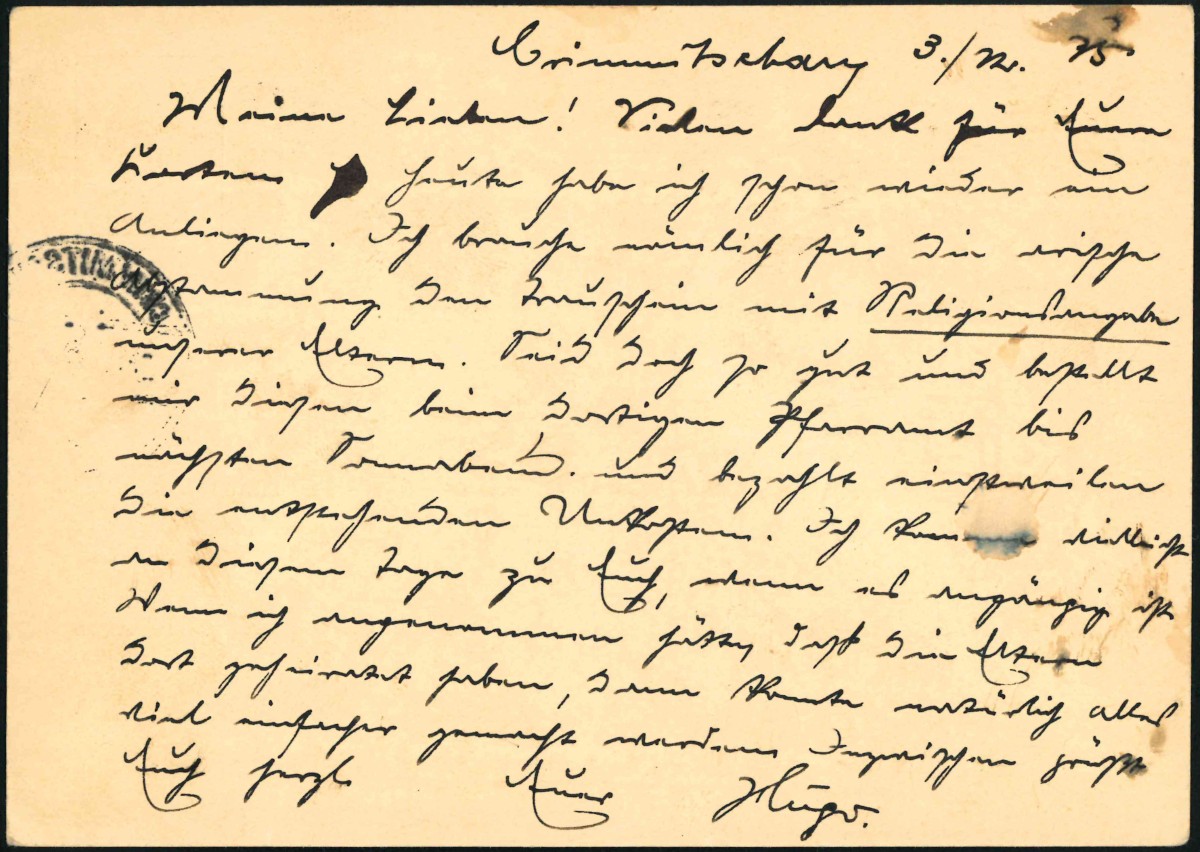 Crimmitschau 3./IV. 35
Meine Lieben! Vielen Dank für Euere
Karten heute habe ich schon wieder ein
Anliegen. Ich brauche nämlich für die arische
Abstammung den Trauschein mit Religionsangabe
unserer Eltern. Seid doch so gut und bestellt
mir diesen beim dortigen Pfarramt bis
nächsten Sonnabend. und bezahlt einstweilen
die entstehenden Unkosten. Ich komme vielleicht
an diesem Tage zu Euch, wenn es angängig ist
Wenn ich angenommen hätte, daß die Eltern
dort geheiratet haben, dann konnte natürlich alles
viel einfacher gemacht werden. Inzwischen grüßt
Euch herzl Euer Hugo.